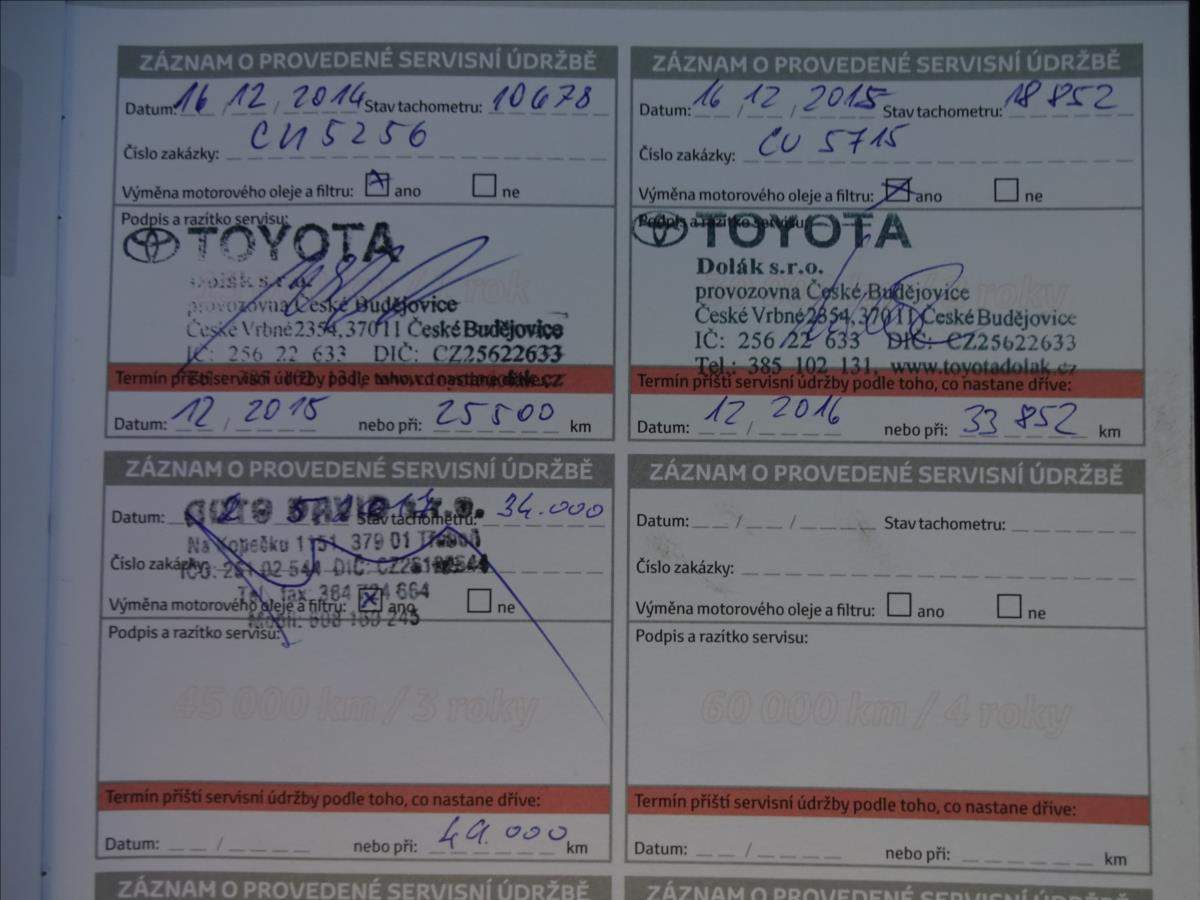 ZÁZNAM O PROVEDENÉ SERVISNÍ ÚDRŽBĚ
Datum: 16/12/2014 Stav tachometru: 10678
Číslo zakázky: CU5256
Výměna motorového oleje a filtru: ano ne
Podpis a razítko servisu:
TOYOTA
Dolák s.r.o.
provozovna České Budějovice
České Vrbné 2354, 37011 České Budějovice
IČ: 256 22 633 DIČ: CZ25622633
Termín příští servisní údržby podle toho, co nastane dříve:
Datum: 12/2015 nebo při: 25500 km
ZÁZNAM O PROVEDENÉ SERVISNÍ ÚDRŽBĚ
Datum: 16/12/2015 Stav tachometru: 18 852
Číslo zakázky: CU 5715
Výměna motorového oleje a filtru: ano ne
Podpis a razítko servisu:
TOYOTA
Dolák s.r.o.
provozovna České Budějovice
České Vrbné 2354, 37011 České Budějovice
IČ: 256 22 633 DIČ: CZ25622633
Tel.: 385 102 131, www.toyotadolak.cz
Termín příští servisní údržby podle toho, co nastane dříve:
Datum: 12/2016 nebo při: 33 852 km
ZÁZNAM O PROVEDENÉ SERVISNÍ ÚDRŽBĚ
Datum: 2 5 2017 Stav tachometru: 34.000
auto s.r.o.
Na Kopečku 1151, 379 01 Třeboň
Číslo zakázky:
Výměna motorového oleje a filtru: ano ne
Podpis a razítko servisu:
45 000 km / 3 roky
Termín příští servisní údržby podle toho, co nastane dříve:
Datum: / nebo při: 49.000 km
ZÁZNAM O PROVEDENÉ SERVISNÍ ÚDRŽBĚ
Datum: / / Stav tachometru:
Číslo zakázky:
Výměna motorového oleje a filtru: ano ne
Podpis a razítko servisu:
60 000 km / 4 roky
Termín příští servisní údržby podle toho, co nastane dříve:
Datum: / nebo při: km
ZÁZNAM O PROVEDENÉ SERVISNÍ ÚDRŽBĚ
ZÁZNAM O PROVEDENÉ SERVISNÍ ÚDRŽBĚ